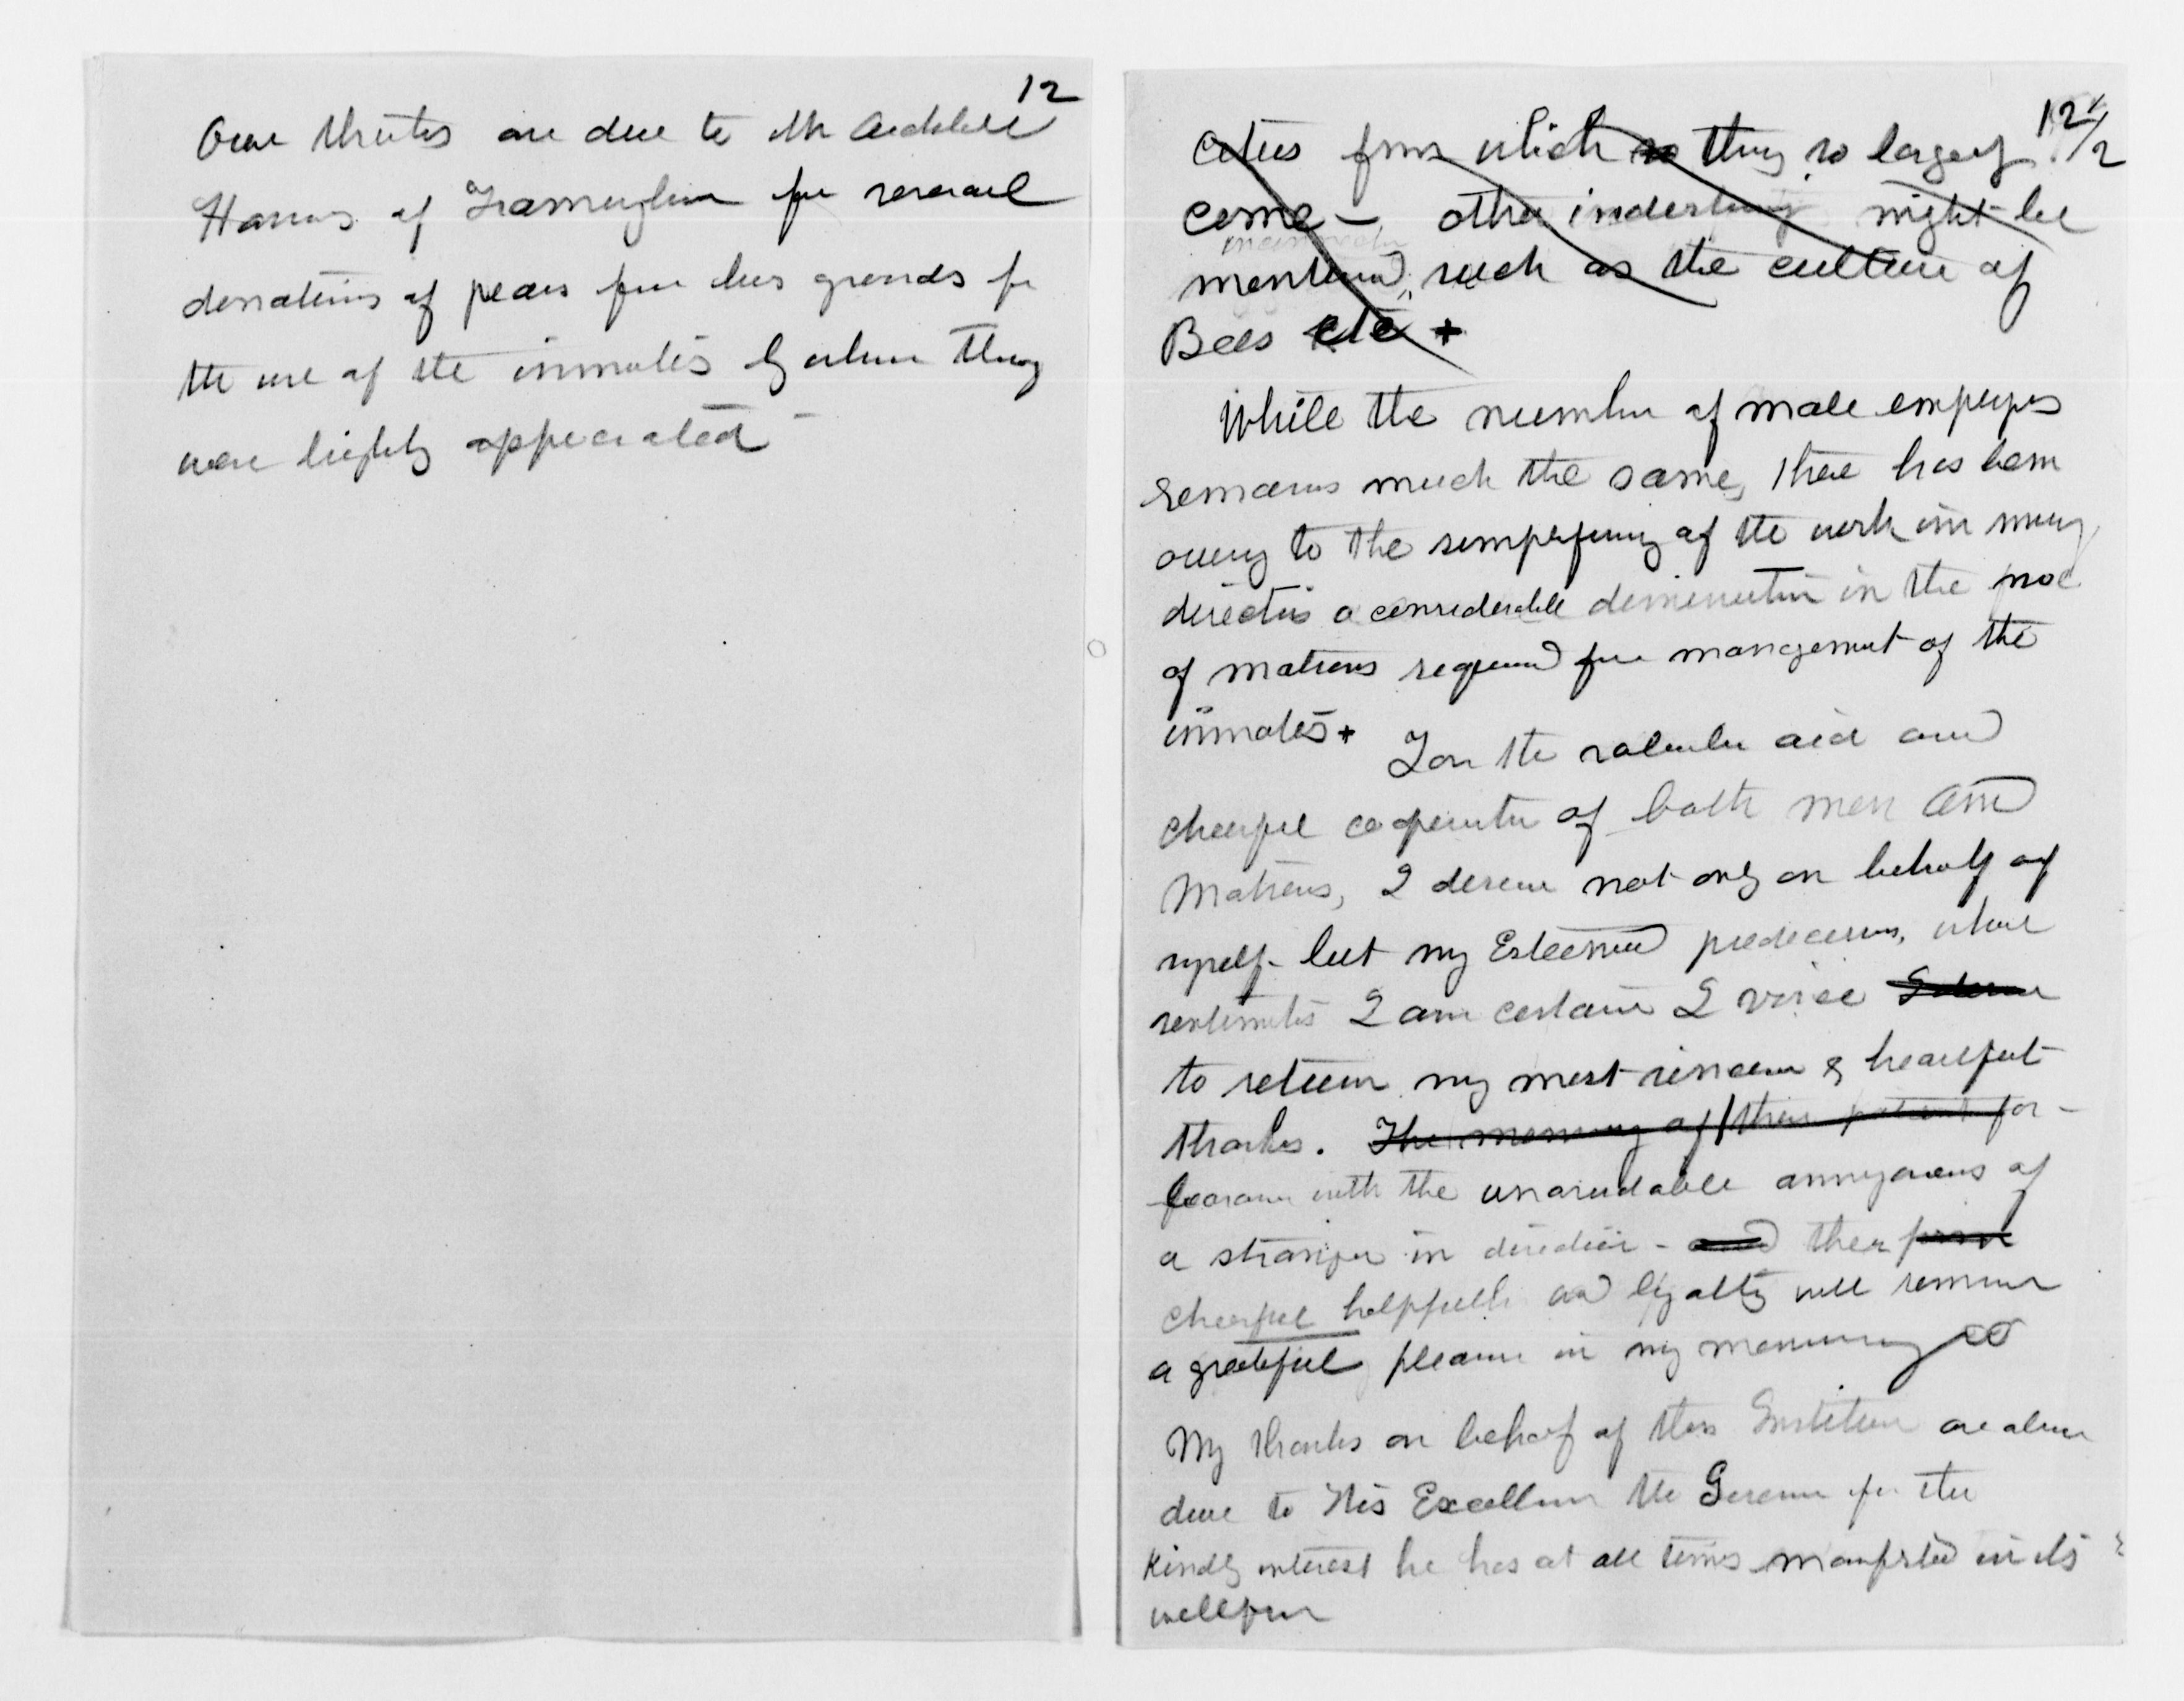 12
Our thanks are due to Mr
Harris of Framingham for several
donations of pears from his grounds for
the use of the inmates by whom they
were highly appreciated -
12 1/2
Cities from which so they so largely
come - other industries might be
mentioned, such as the culture of
Bees etc +
While the number of male employes
remains much the same, there has been
owing to the simplifying of the work in many
directions a considerable diminution in the no
of matrons required for management of the
inmates + For the valuable aid and
cheerful cooperation of both men and
Matrons, I desire not only on behalf of
myself but my Esteemed predecessor, whose
sentiments I am certain I voice I desire
to return my most sincere & heartfelt
thanks. The memory of their patient for-
bearance with the unavoidable annoyances of
a stranger in direction - and their
cheerful helpfulness and loyalty will remain
a grateful pleasure in my memory
My thanks on behalf of this Institution are also
due to His Excellency the Governor for the
Kindly interest he has at all times manifested in its
wellfare